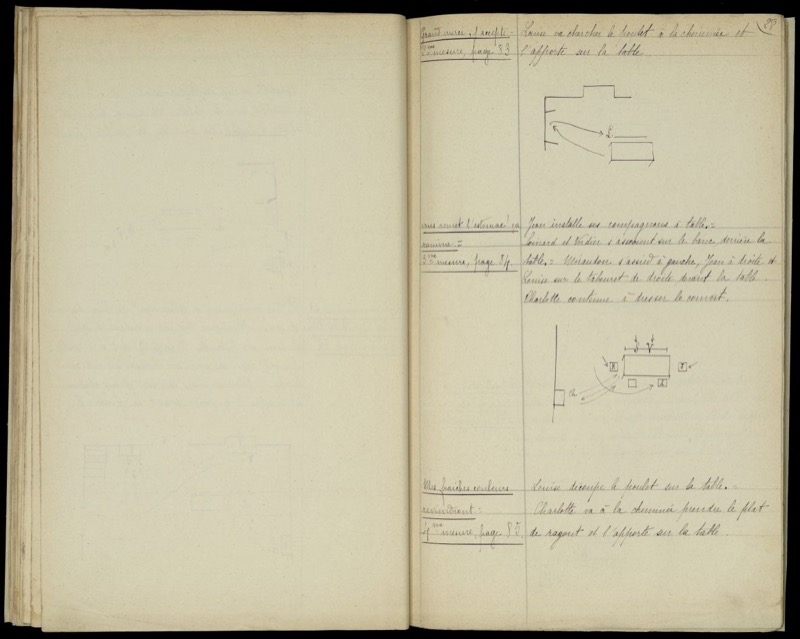 23
Grand'mère, j'accepte =
2me mesure, page 83
Louise va chercher le poulet à la cheminée et
l'apporte sur la table
L
vous remet l'estomac
ramine =
2me mesure, page 84
Jean installe ses compagnons à table. =
et Verdier s'asseoient sur le banc derrière la
table. = s'assied à gauche, Jean à droite et
Louise sur le tabouret de droite devant la table
Charlotte continue à dresser le couvert.
V
J
L
Ch
Mes fraîches couleurs
reviendront =
mesure, page 85
Louise découpe le poulet sur la table. =
Charlotte va à la cheminée prendre le plat
de ragout et l'apporte sur la table